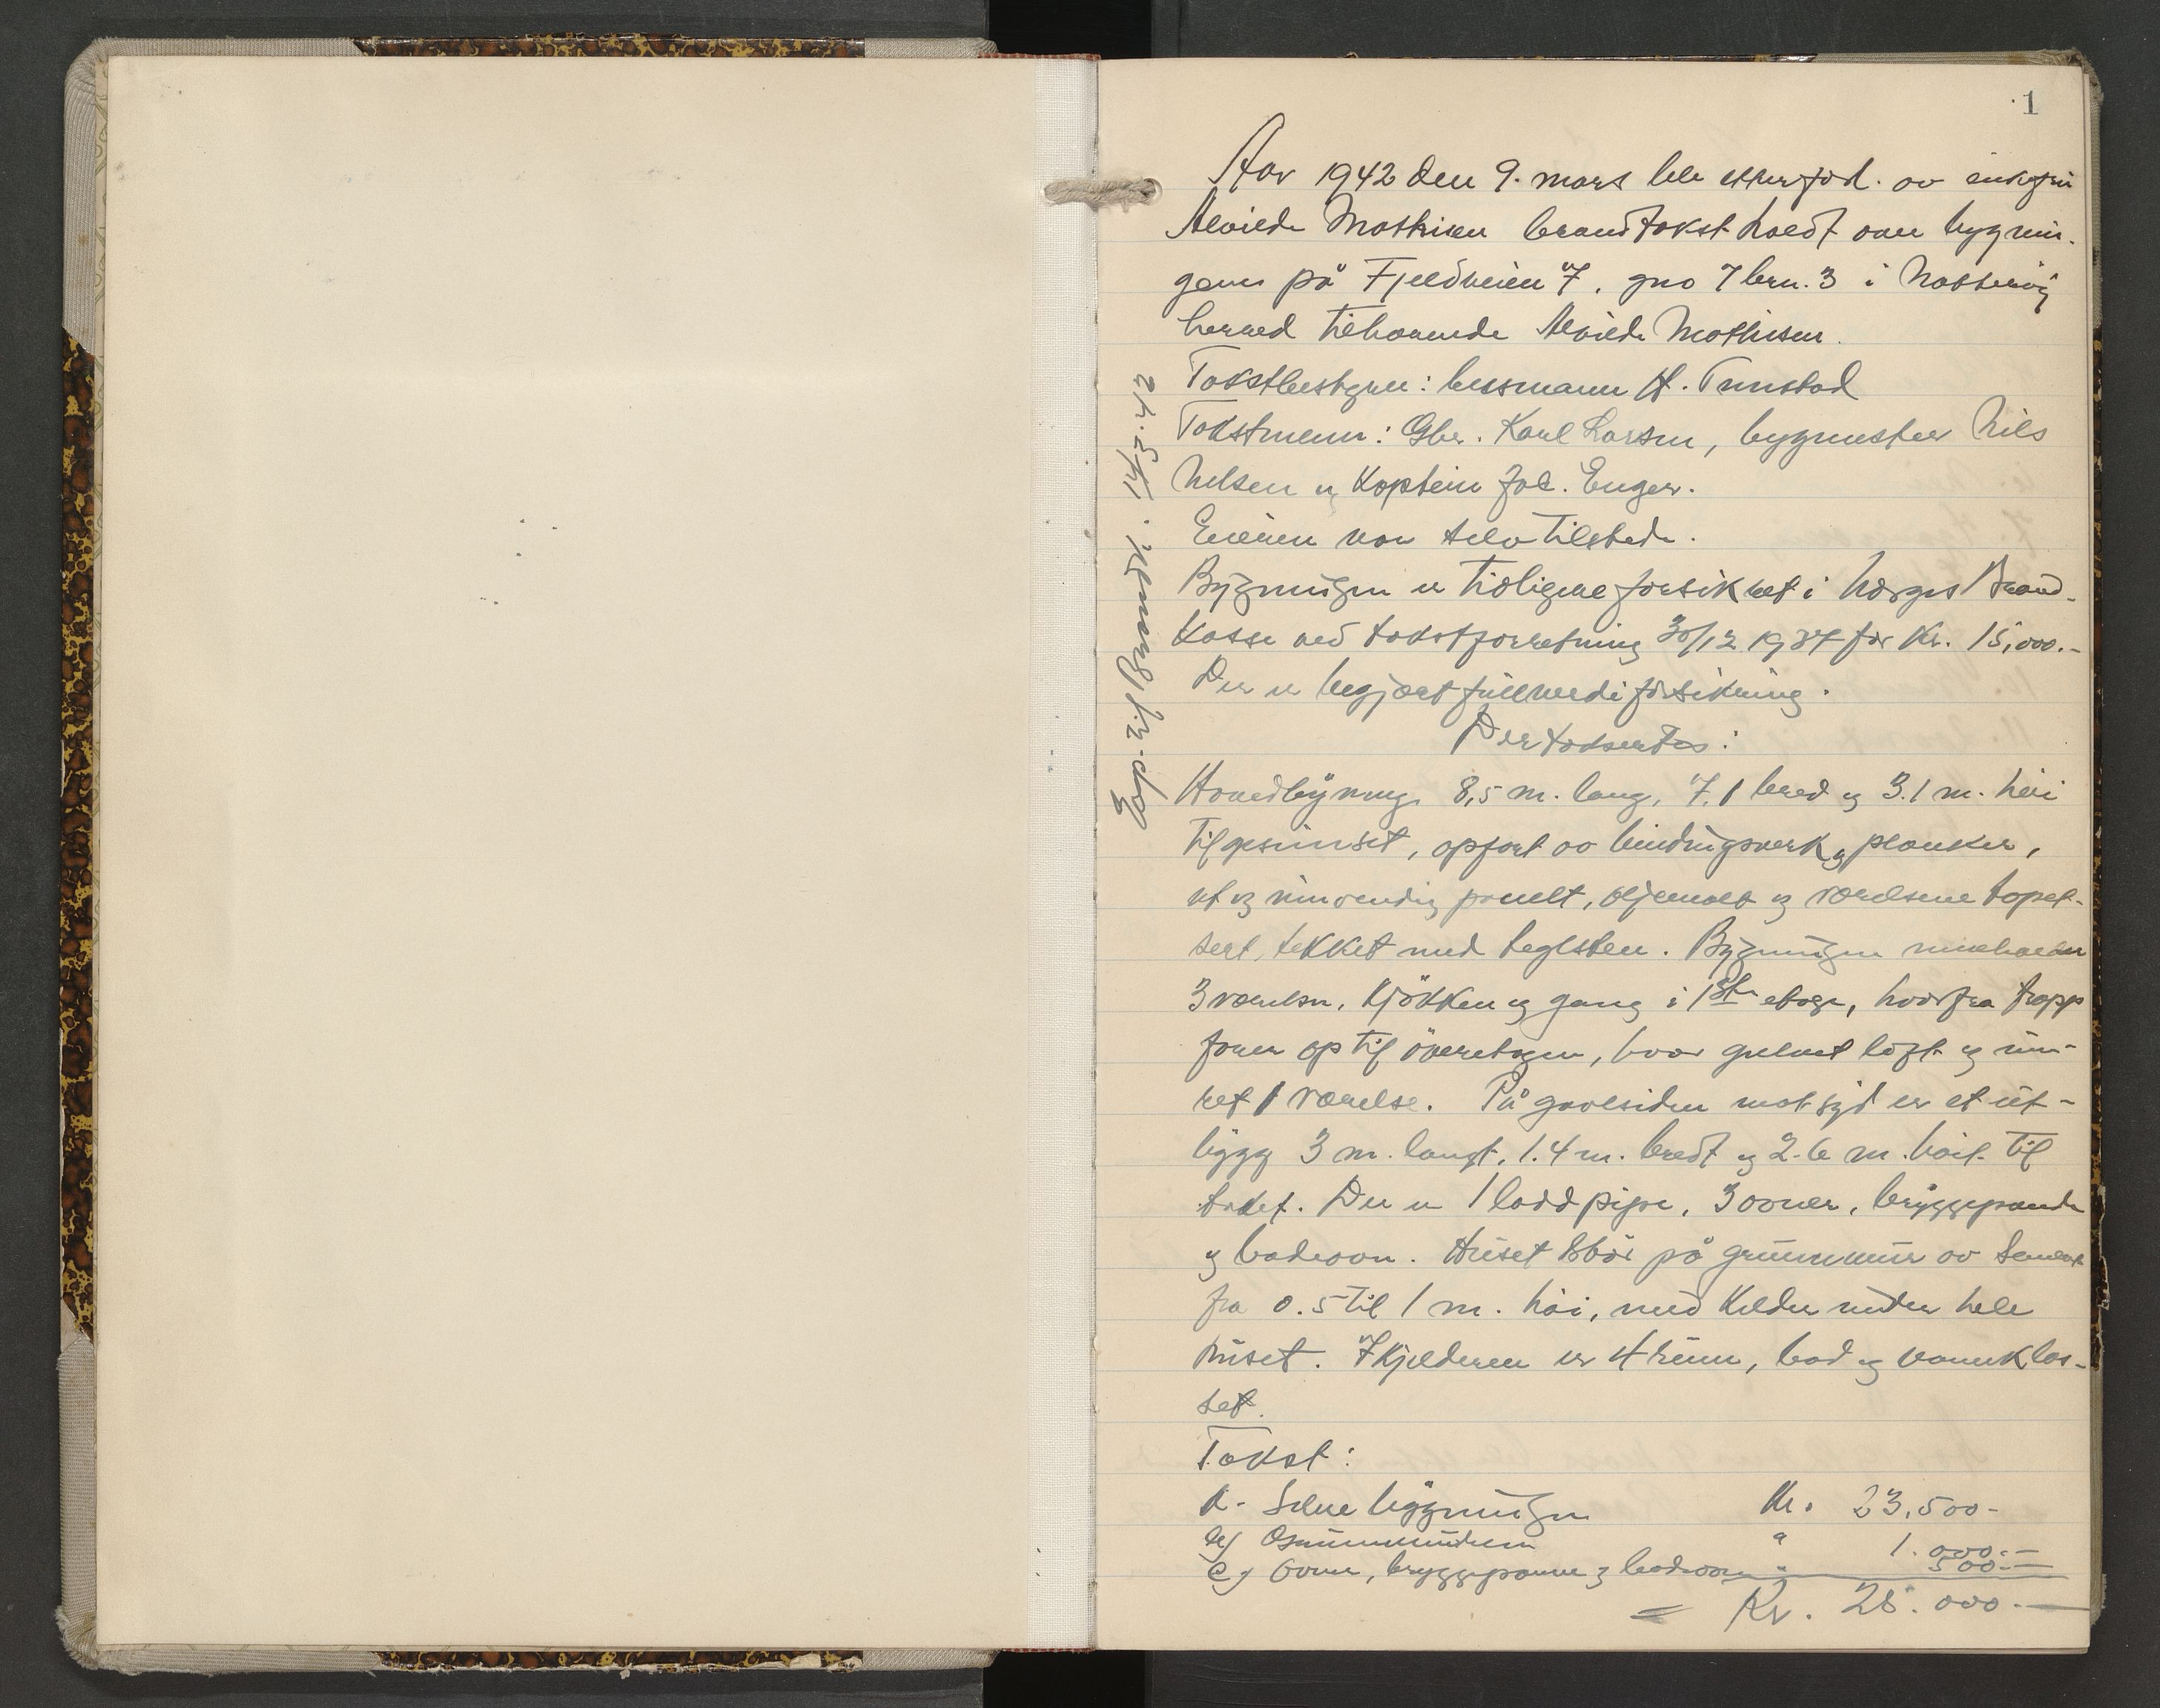 1
Aar 1942 den 9. mars ble etter fod. av enkefru
Alvilde Mathisen brandtakst holdt over bygnin-
gene på Fjeldveien 7, gno 7 brn. 3 i Nøtterøy
herred tilhørende Alvilde Mathisen.
Takstbestyrer: lensmann H. Tunstad
Takstmenn: Gbr. Karl Larsen, bygmester Nils
Nelsen og Kaptein Jac. Enger.
Eieren var selv tilstede.
Bygningen er tidligere forsikret i Norges Brand-
kasse ved takstforretning 30/12 1937 for Kr. 15,000.-
Der er begjært fullverdiforsikring.
Der taksertes:
Hovedbygning 8,5 m. lang, 7,1 bred og 3.1 m. høi
til gesimset, opført av bindingsverk og planker,
ut og innvendig panelt, oljemalt og værelsene tapet-
sert, tekket med teglsten. Bygningen inneholder
3 værelser, kjøkken og gang i 1ste etage, hvorfra trapp
fører op til øveretagen, hvor gulvet loft og inn-
ret 1 værelse. På gavlsiden mot syd er et ut-
bygg 3 m. langt, 1.4 m. bredt og 2.6 m. høit til
taket. Der er 1 lodd pipe, 3 ovner, bryggepande
og badeovn. Huset står på grunnmur av sement
fra 0.5 til 1 m. høi, med kelder under hele
huset. I kjelderen er 4 rum, bad og vannklos-
set.
Takst:
a. Selve bygningen Kr. 23,500-
b) Grunnmuren " 1.000.-
c) Ovner, bryggepanne og badeovn " 500.-
= Kr. 25.000.-
Eksp. til Brannd. 14/3.42